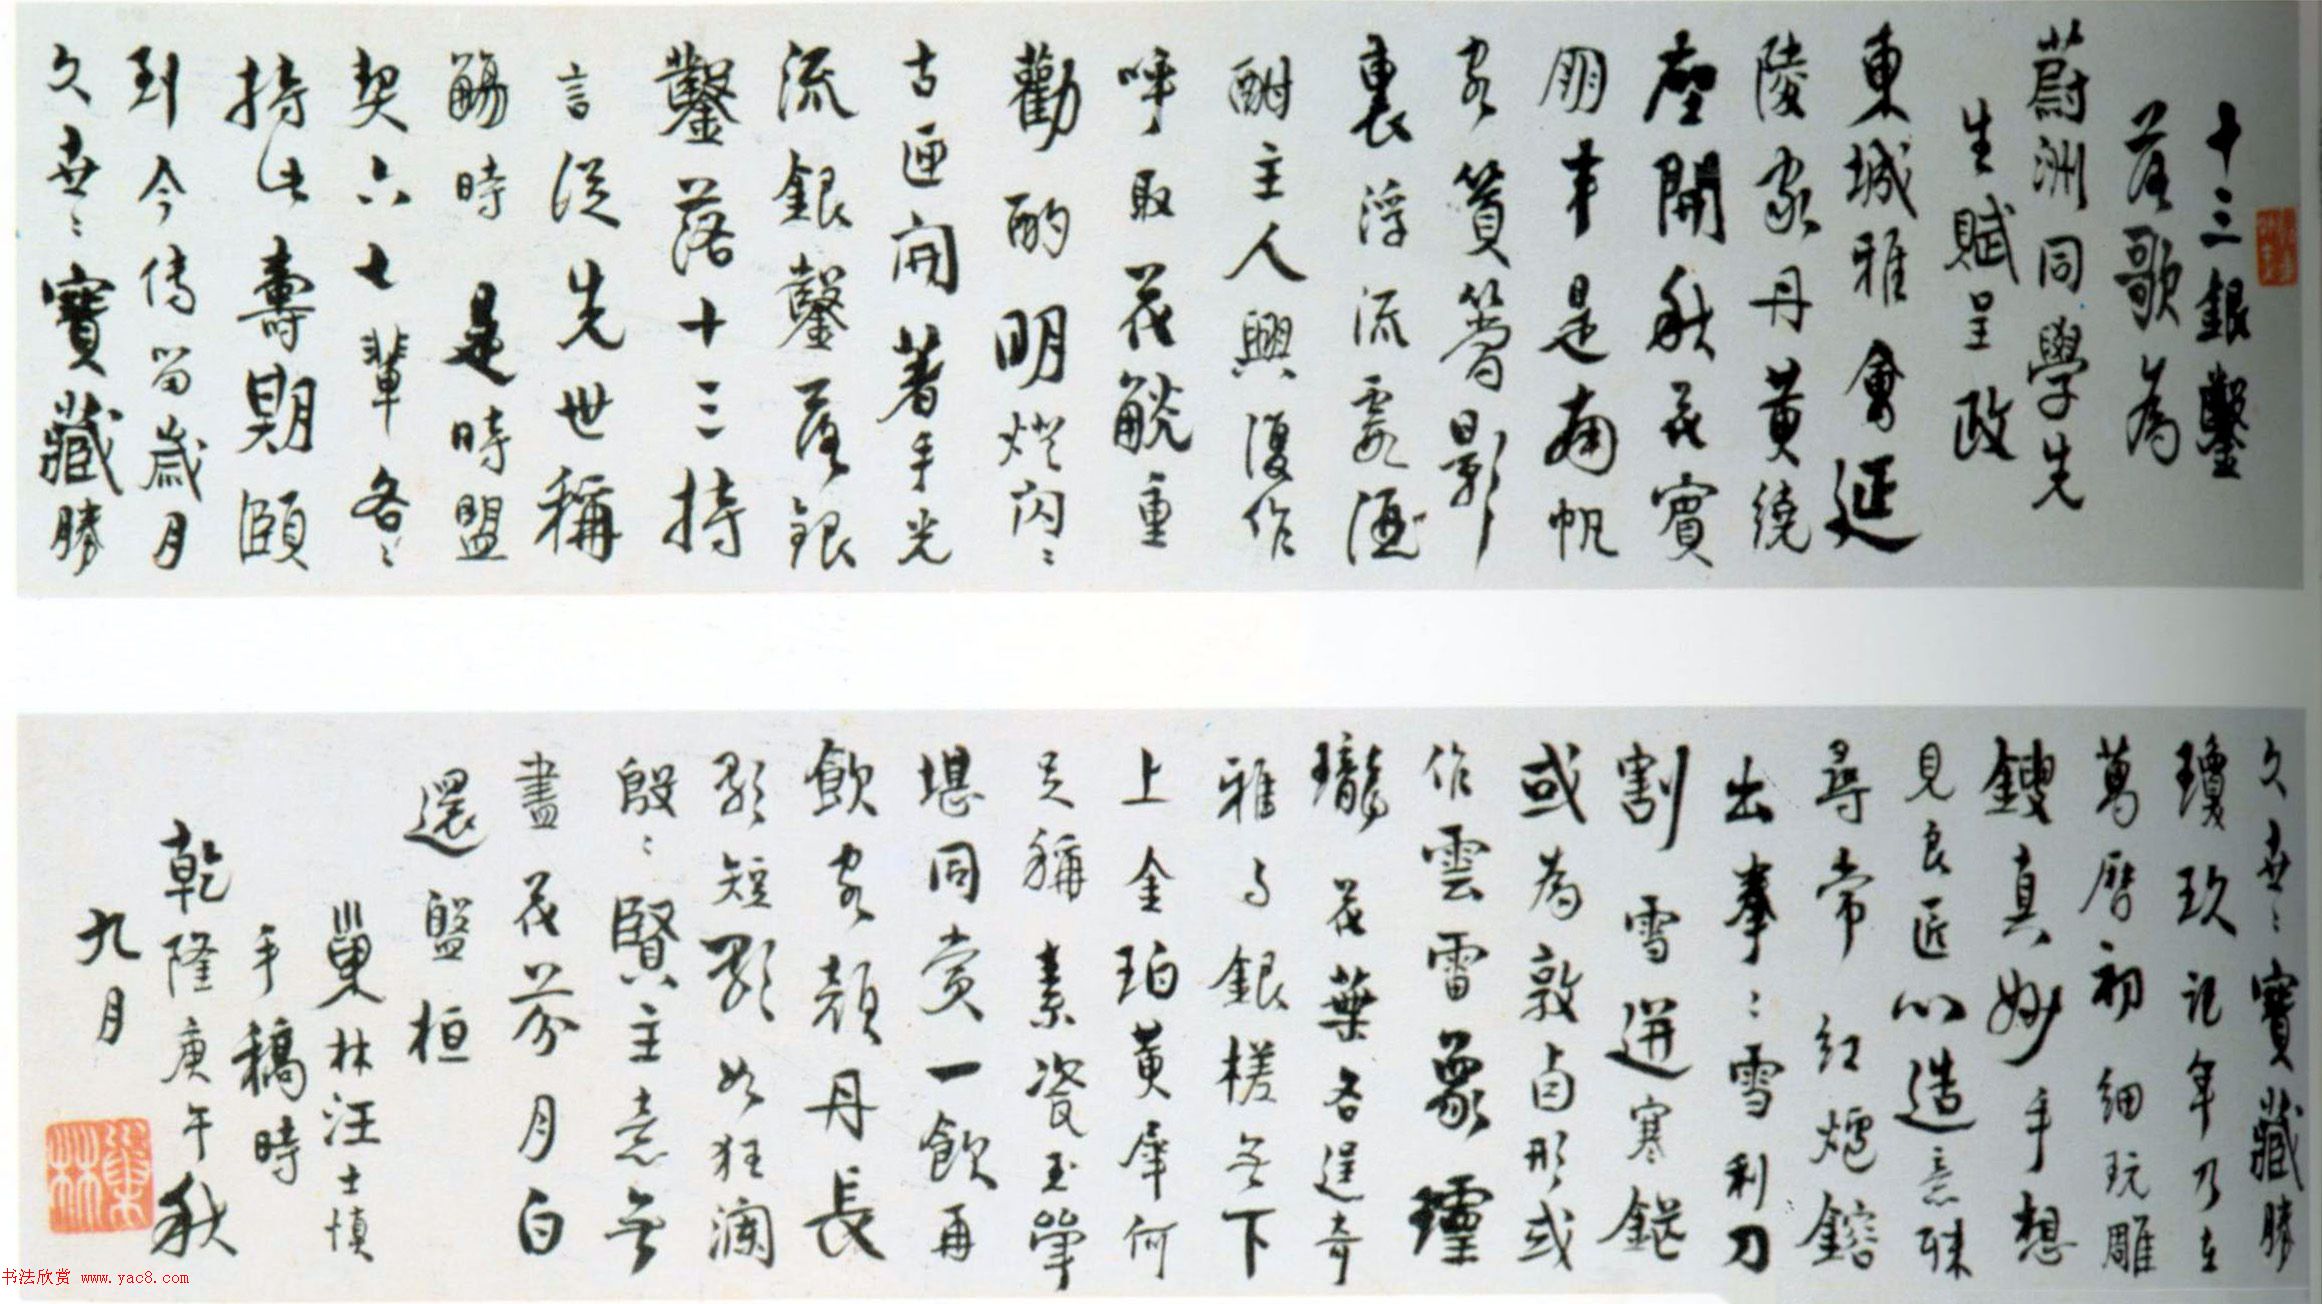 十三銀鑿
落歌為
蔚洲同學先
生賦呈政
東城雅會延
陵家丹黄繞
座開秋花賓
朋半是南帆
客篔簹影
裏浮流霞酒
酣主人興復作
呼取花觥重
勸酌明燈閃〻
古匣開著手光
流銀鑿落銀
鑿落十三持
言從先世稱
觴時是時盟
契六七輩各〻
持此壽期頤
到今傳留歲月
久世〻寶藏勝
久世〻寶藏勝
瓊玖記年乃在
萬曆初細玩雕
鎪真妙手想
見良匠心造意殊
尋常紅爐鎔
出拳〻雪利刀
割雪迸寒鋩
或為敦卣形或
作雲雷象瓊
瓏花葉各逞奇
雅与銀槎無下
上金珀黄犀何
足稱素瓷玉斝
堪同賞一飲再
飲客顔丹長
歌短歌如狂瀾
殷〻賢主意無
盡花芬月白
還盤桓
巢林汪士慎
手稿時
乾隆庚午秋
九月
巢林
书法欣赏 www.yac8.com